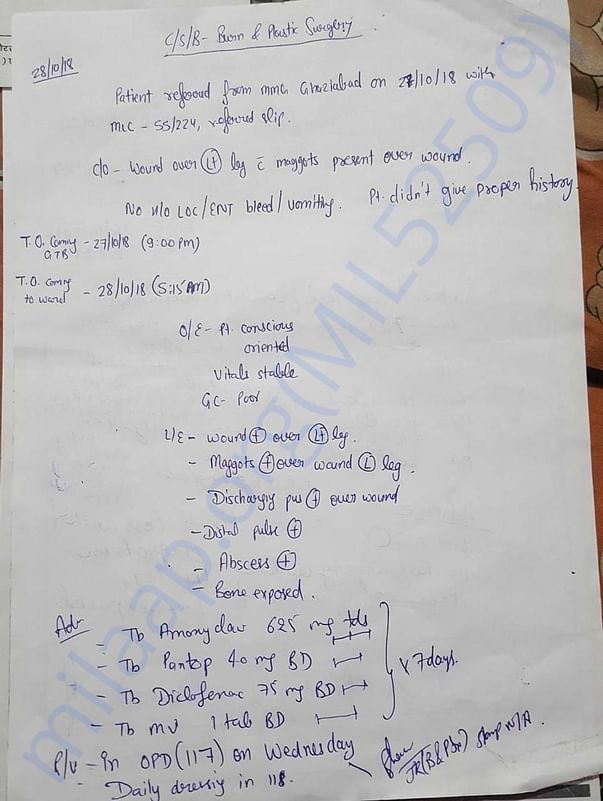 C/S/B- Burn & Plastic Surgery
28/10/18
Patient refered from MMG Ghaziabad on 27/10/18 with
MLC - SS/224, refered slip.
c/o - Wound over Lt leg c̄ maggots present over wound.
No H/o LOC/ENT bleed/vomiting. Pt. didn't give proper history.
T.O. Coming - 27/10/18 (9:00 PM)
GTB
T.O. coming - 28/10/18 (5:15 AM)
to ward
O/E- Pt. conscious
oriented
Vitals stable
GC- Poor
L/E - wound ⊕ over Lt leg.
- Maggots ⊕ over wound L leg.
- Discharging pus ⊕ over wound
- Distal pulse ⊕
- Abscess ⊕
- Bone exposed.
Adv
- Tb Amonyclav 625 mg tds
- Tb Pantop 40 mg BD
- Tb Diclofenac 75 mg BD
- Tb MVI 1 tab BD
x 7 days.
F/U - In OPD (117) on Wednesday
- Daily dressing in 118.
JR (B & PSx) stamp N/A.
milaap.org(MIL52509)